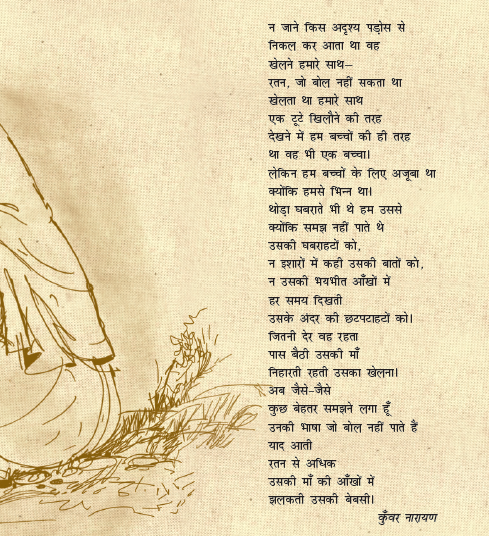 न जाने किस अदृश्य पड़ोस से
निकल कर आता था वह
खेलने हमारे साथ–
रतन, जो बोल नहीं सकता था
खेलता था हमारे साथ
एक टूटे खिलौने की तरह
देखने में हम बच्चों की ही तरह
था वह भी एक बच्चा।
लेकिन हम बच्चों के लिए अजूबा था
क्योंकि हमसे भिन्न था।
थोड़ा घबराते भी थे हम उससे
क्योंकि समझ नहीं पाते थे
उसकी घबराहटों को,
न इशारों में कही उसकी बातों को,
न उसकी भयभीत आँखों में
हर समय दिखती
उसके अंदर की छटपटाहटों को।
जितनी देर वह रहता
पास बैठी उसकी माँ
निहारती रहती उसका खेलना।
अब जैसे-जैसे
कुछ बेहतर समझने लगा हूँ
उनकी भाषा जो बोल नहीं पाते हैं
याद आती
रतन से अधिक
उसकी माँ की आँखों में
झलकती उसकी बेबसी।
कुँवर नारायण